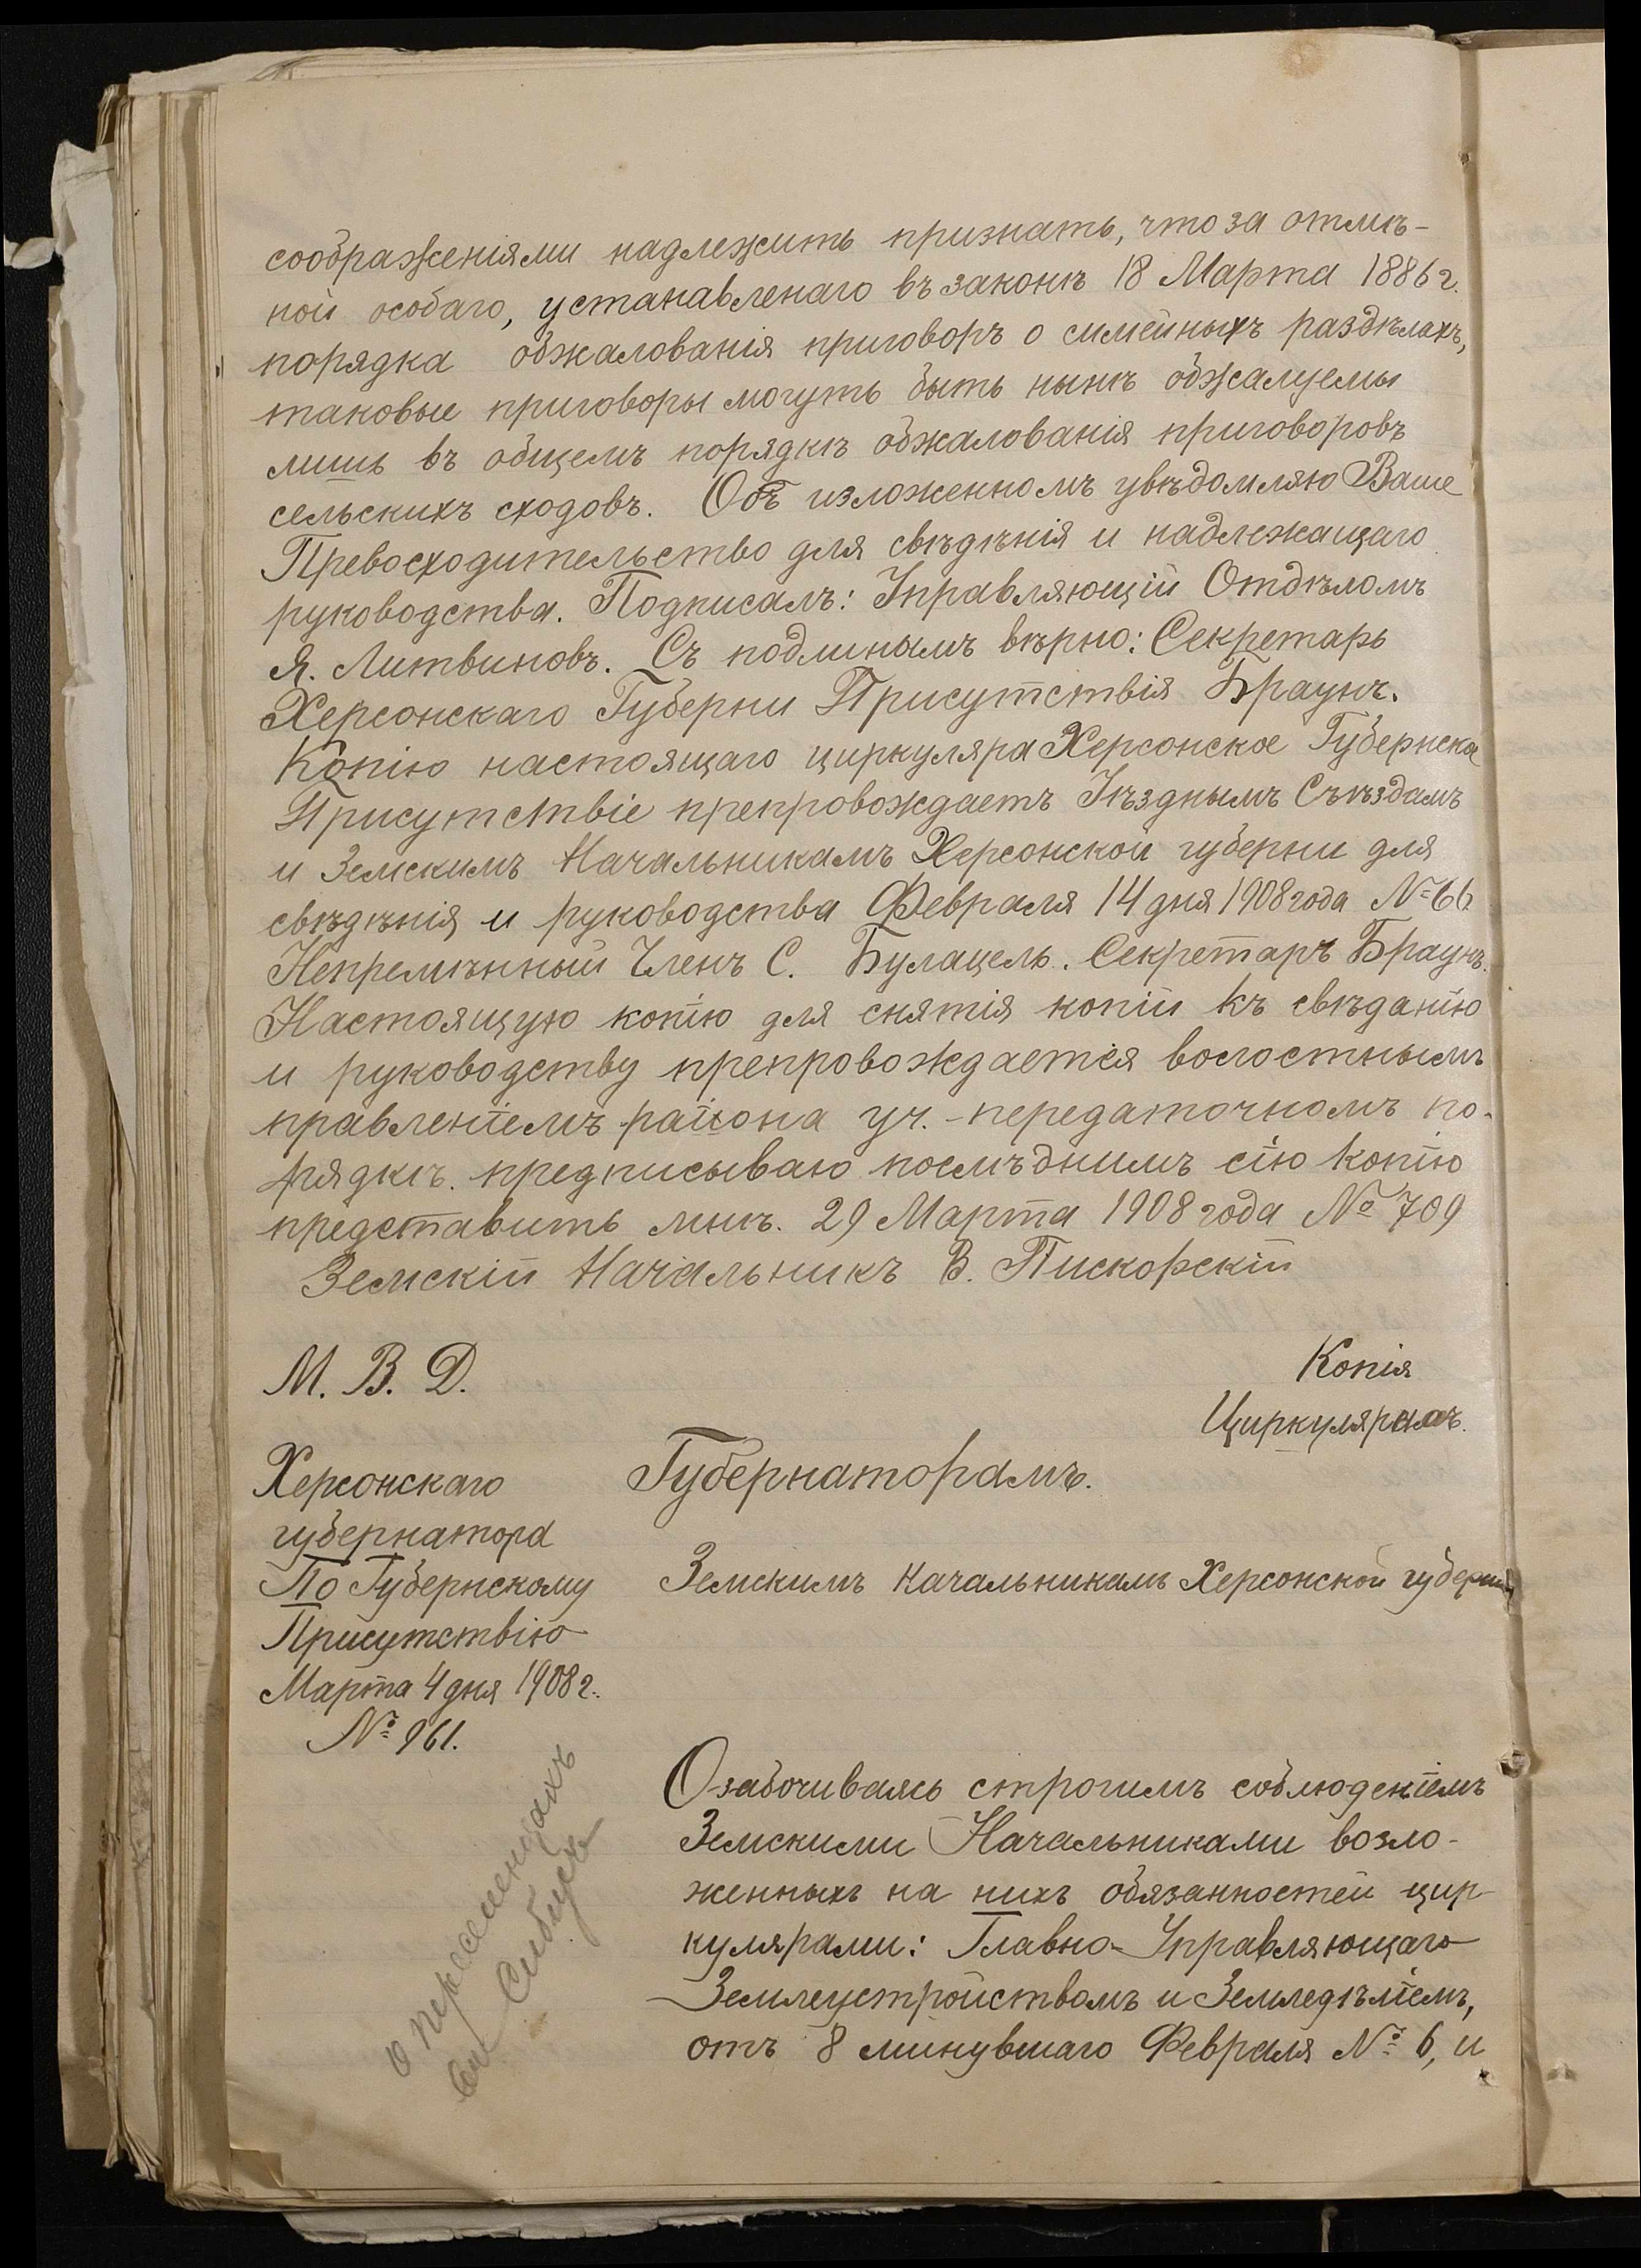 сообраѫеніями надлежить признать, что за отмѣ-
ной особаго, устанавленаго въ законѣ 18 Марта 1886 г.
порядка обжалованія приговоръ о симейныхъ раздѣлахъ,
таковые приговоры могутъ быть нынѣ обжалуемы
лишь въ общемъ порядкѣ обжалованія приговоровъ
сельскихъ сходовъ. Объ изложенномъ увѣдомляю Ваше
Превосходительство для свѣдѣнія и надлежащаго
руководства. Подписалъ: Управляющій Отдѣломъ
Я. Литвиновъ. Съ подлинымъ вѣрно: Секретарь
Херсонскаго Губерни Присутствія Браунъ.
Копію настоящаго циркуляра Херсонское Губернска
Присутствіе препровождаетъ Уѣзднымъ Съѣздамъ
и Земскимъ Начальникамъ Херсонской губерни для
свѣдѣнія и руководства Февраля 14 дня 1908 года № 66
Непремѣнный Членъ С. Булацель. Секретаръ Браунъ.
Настоящую копію для снятія копіи къ свѣданію
и руководству препровождается волостнымъ
правленіемъ раіиона уч. - передаточномъ по-
рядкѣ. предписываю послѣднимъ сію копію
представить мнѣ. 29 Марта 1908 года № 709
Земскій Начальникъ В. Пискорскій
М. В. Д.
Копія
Циркулярно.
Херсонскаго
губернатора
По Губернскому
Присутствію
Марта 4 дня 1908 г.
№ 961.
Губернаторамъ.
Земскимъ Начальникамъ Херсонской губерніи
о переселенцахъ
въ Сибирь
Озабочиваясь строгимъ соблюденіемъ
Земскими Начальниками возло-
женныхъ на нихъ обязанностей цир-
кулярами: Главно-Управляющаго
Землеустройствомъ и Земледѣліемъ,
отъ 8 минувшаго Февраля № 6, и